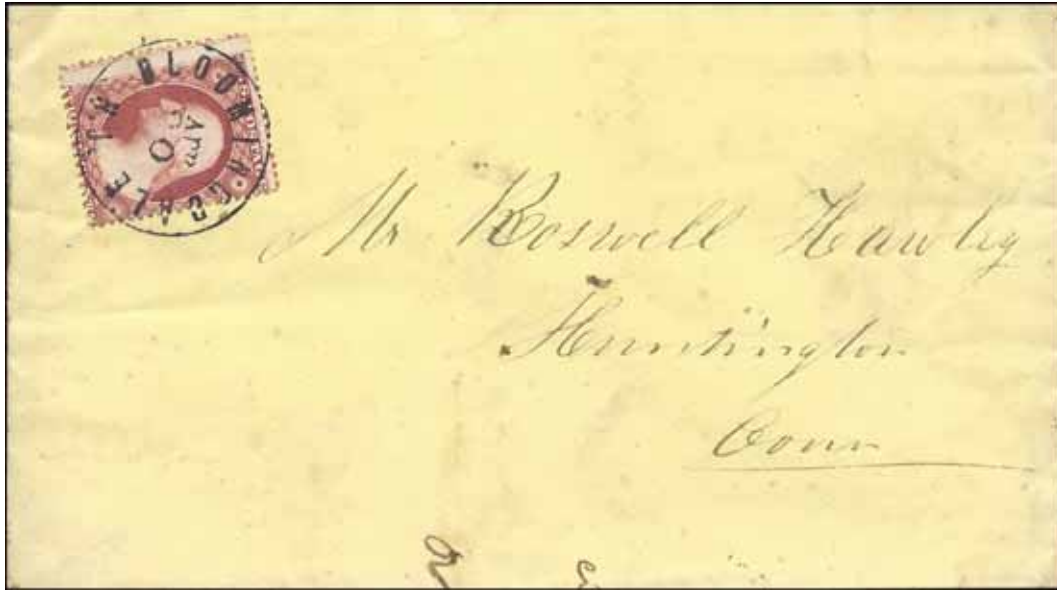 BLOOMINGDALE
APR
Mr Roswell Hawley
Huntington
Conn